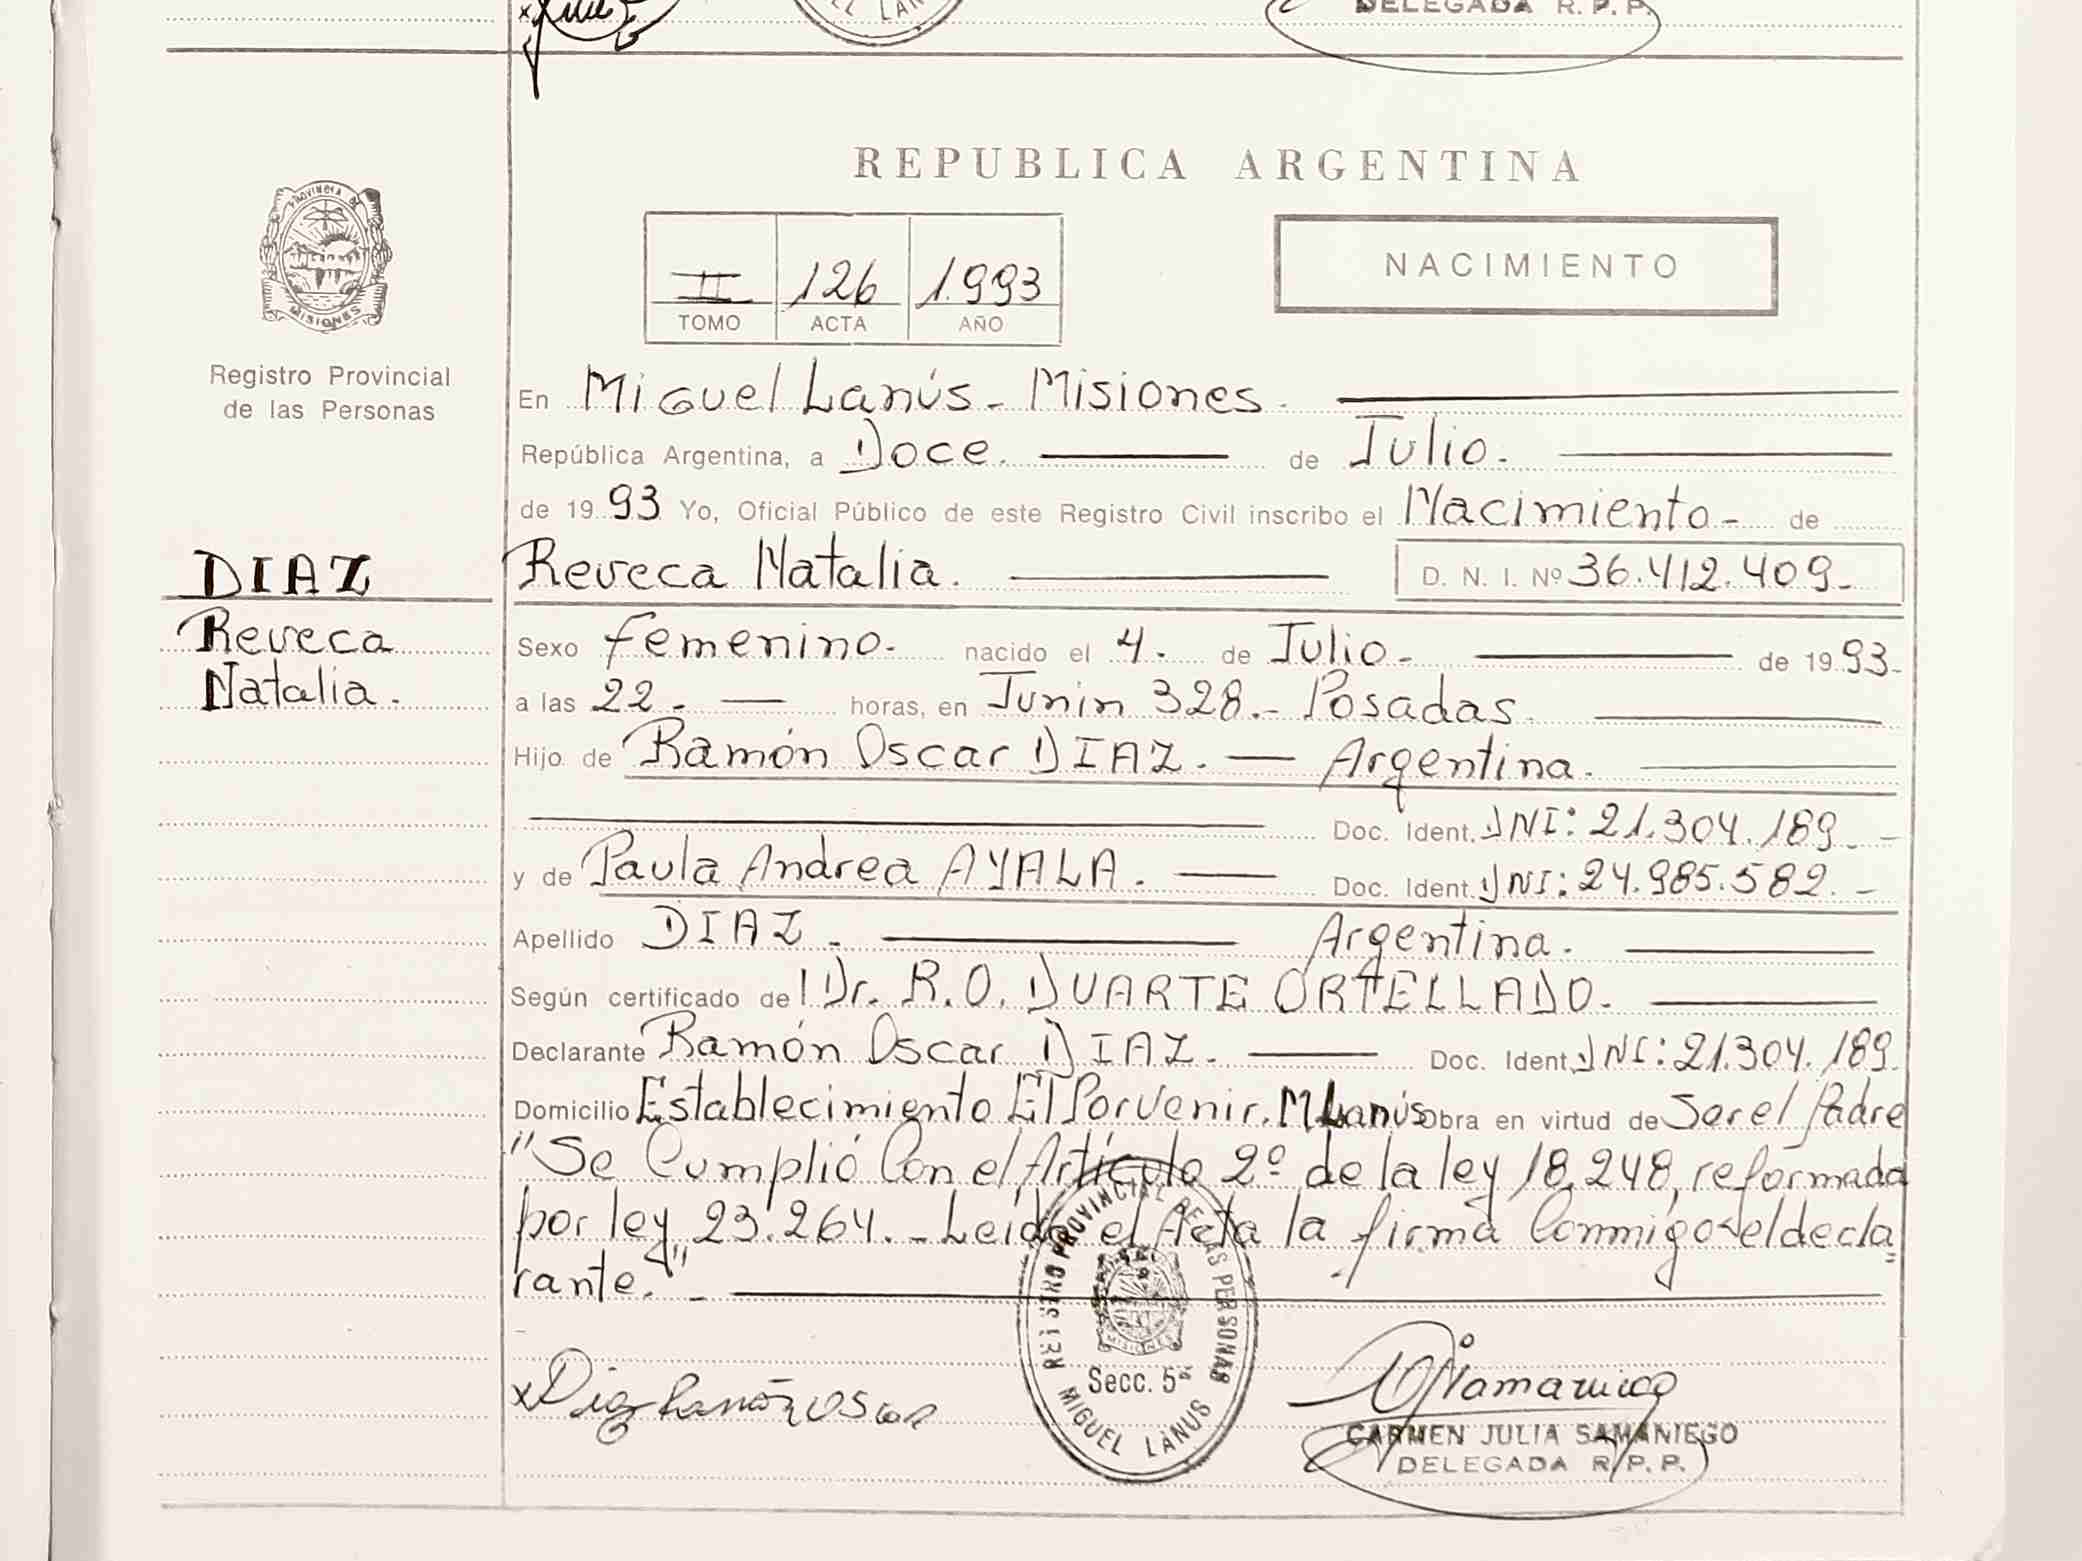 DELEGADA R. P. P.
REPUBLICA ARGENTINA
PROVINCIA DE
MISIONES
Registro Provincial
de las Personas
II 126 1.993
TOMO ACTA AÑO
NACIMIENTO
En Miguel Lanús - Misiones.
República Argentina, a Doce. de Julio.
de 19 93 Yo, Oficial Público de este Registro Civil inscribo el Nacimiento - de
DIAZ
Reveca
Natalia.
Reveca Natalia. D. N. I. Nº 36.412.409-
Sexo femenino- nacido el 4. de Julio- de 19 93-
a las 22.- horas, en Junin 328.- Posadas.
Hijo de Ramón Oscar DIAZ. — Argentina.
Doc. Ident. DNI: 21.304.189.-
y de Paula Andrea AYALA. — Doc. Ident. DNI: 24.985.582.-
Apellido DIAZ. Argentina.
Según certificado del Dr. R.O. DUARTE ORTELLADO.
Declarante Ramón Oscar DIAZ. Doc. Ident. DNI: 21.304.189.
Domicilio Establecimiento El Porvenir. M Lanús obra en virtud de Ser el Padre
"Se Cumplió Con el Artículo 2º de la ley 18.248, reformada
por ley 23.264.- Leida el Acta la firma Conmigo el decla=
rante."-
REGISTRO PROVINCIAL DE LAS PERSONAS
MISIONES
Secc. 5ª
MIGUEL LANUS
x Diaz Ramón Oscar
CARMEN JULIA SAMANIEGO
DELEGADA R. P. P.